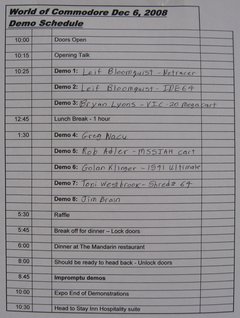 World of Commodore Dec 6, 2008
Demo Schedule
10:00 Doors Open
10:15 Opening Talk
10:25 Demo 1: Leif Bloomquist - Netracer
Demo 2: Leif Bloomquist - IDE64
Demo 3: Bryan Lyons - VIC-20 Megacart
12:45 Lunch Break - 1 hour
1:30 Demo 4: Greg Nacu
Demo 5: Rob Adler - MSSIAH cart
Demo 6: Golan Klinger - 1541 Ultimate
Demo 7: Toni Westbrook - Shredz 64
Demo 8: Jim Brain
5:30 Raffle
5:45 Break off for dinner – Lock doors
6:00 Dinner at The Mandarin restaurant
8:00 Should be ready to head back - Unlock doors
8:45 Impromptu demos
10:00 Expo End of Demonstrations
10:30 Head to Stay Inn Hospitality suite